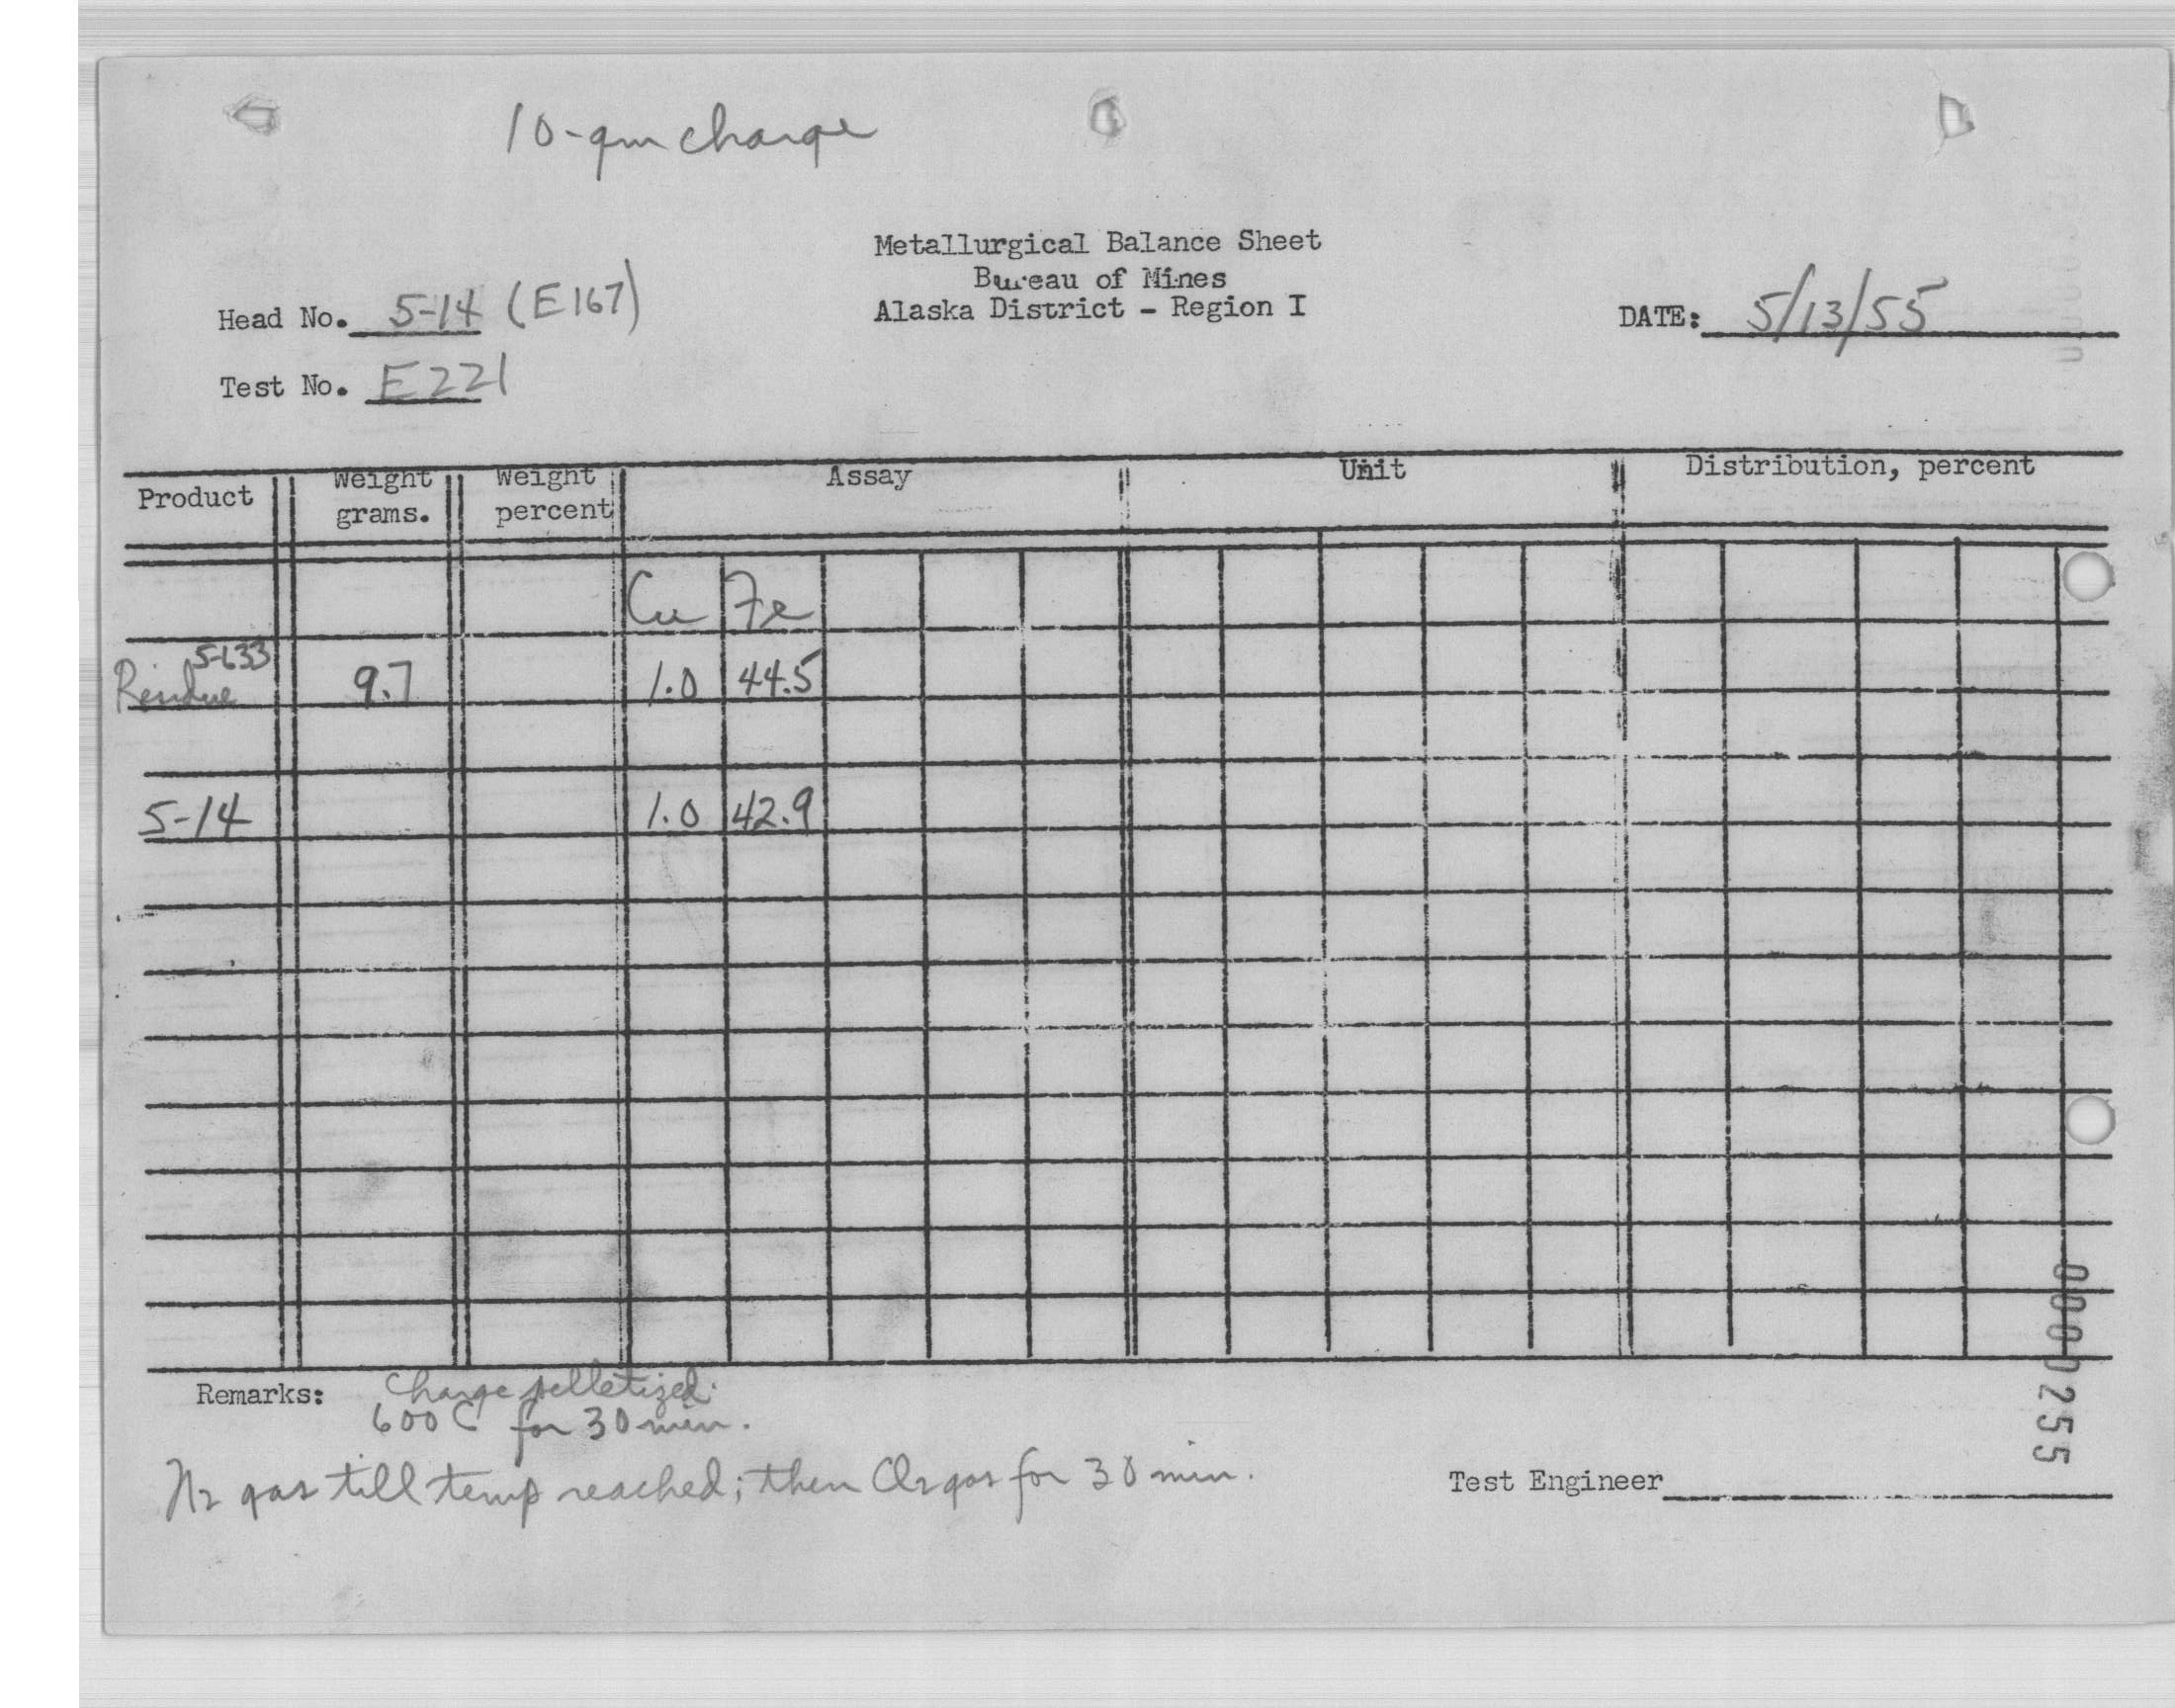 10-gm charge
Metallurgical Balance Sheet
Bureau of Mines
Alaska District - Region I
Head No. 5-14 (E167)
DATE: 5/13/55
Test No. E221
Product
Weight grams.
Weight percent
Assay
Unit
Distribution, percent
Cu Fe
5-633
Residue 9.7 1.0 44.5
5-14 1.0 42.9
Remarks: Charge pelletized.
600 C for 30 min.
N2 gas till temp reached; then Cl2 gas for 30 min.
Test Engineer
0000255